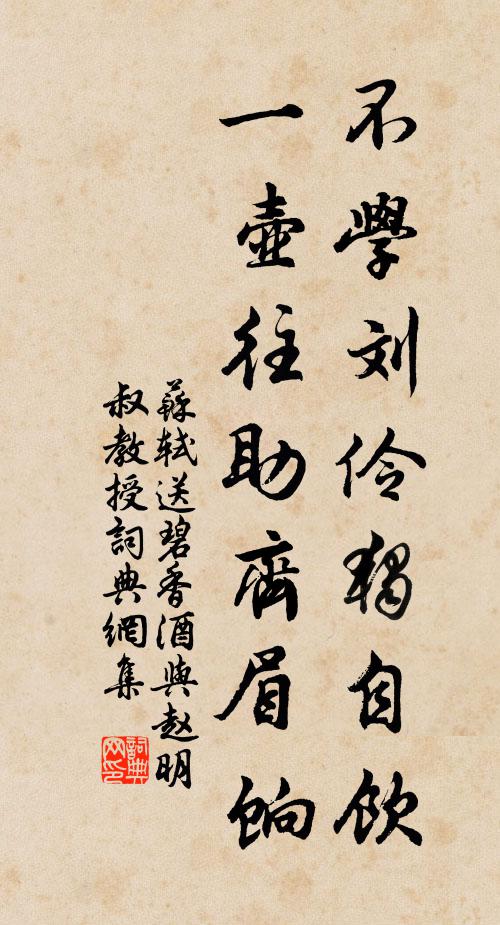 不學刘伶獨自飲
一壺往助齊眉餉
蘇轼送碧香酒與赵明
叔教授詞典網集
詞典網印